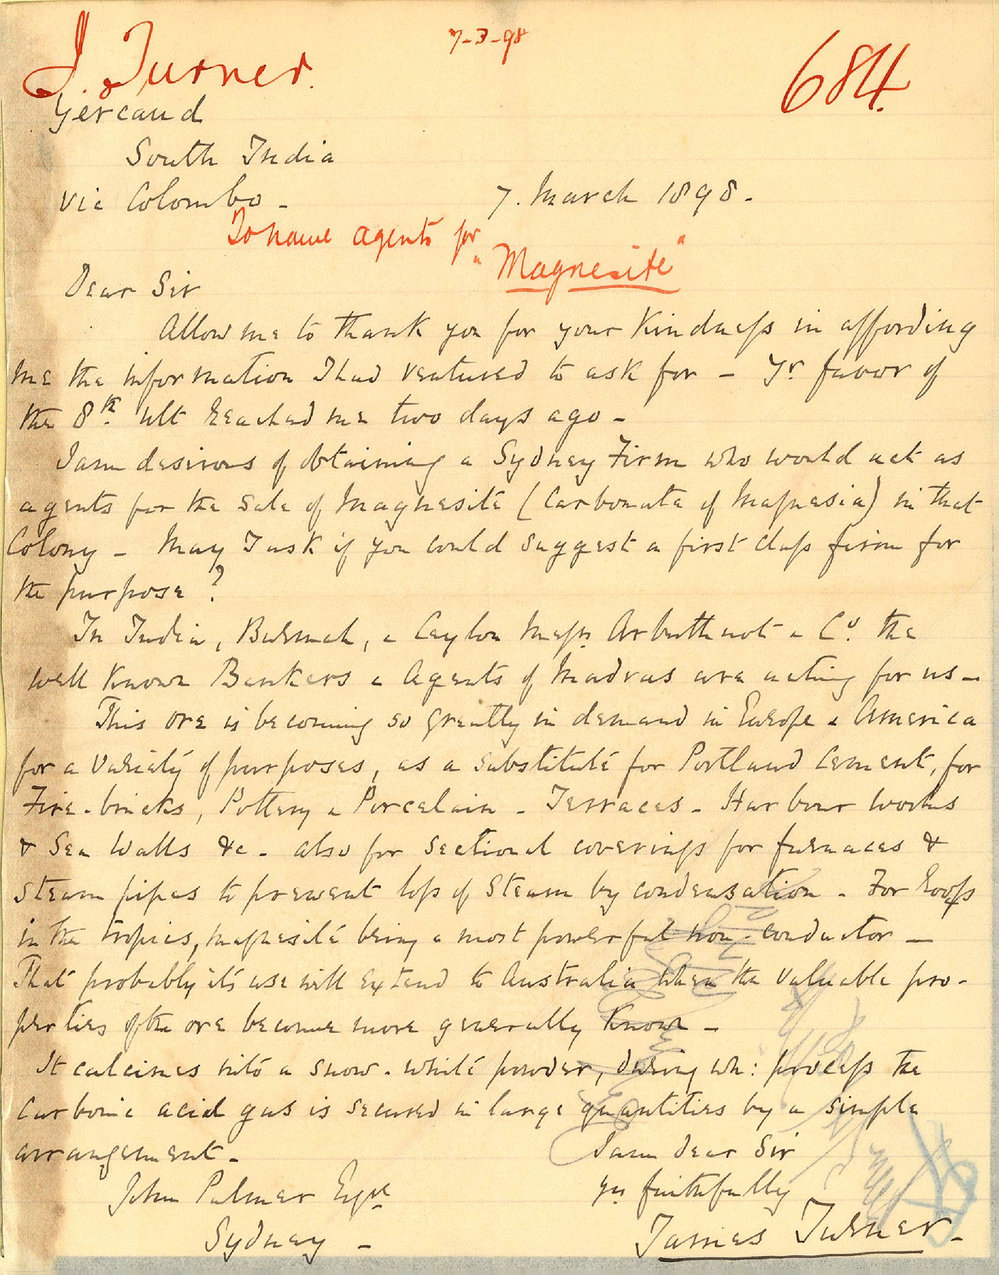 J. Turner.
7-3-98
684.
Yercaud
South India
via Colombo -
7. March 1898.
To name agents for
"Magnesite"
Dear Sir
Allow me to thank you for your kindness in affording
me the information I had ventured to ask for - Yr. favor of
the 8th. ult reached me two days ago -
I am desirous of obtaining a Sydney Firm who would act as
agents for the sale of Magnesite (Carbonate of Magnesia) in that
Colony - May I ask if you could suggest a first class firm for
the purpose?
In India, Burmah, & Ceylon Messrs. Arbuthnot & Co. the
well known Bankers & Agents of Madras are acting for us -
This ore is becoming so greatly in demand in Europe & America
for a variety of purposes, as a substitute for Portland Cement, for
Fire-bricks, Pottery & Porcelain - Terraces - Harbour works
& Sea Walls &c - also for sectional coverings for furnaces &
steam pipes to prevent loss of steam by condensation - For roofs
in the tropics, magnesite being a most powerful non-conductor -
That probably its use will extend to Australia when the valuable pro-
perties of the ore become more generally known -
It calcines into a snow-white powder, during wh: process the
carbonic acid gas is secured in large quantities by a simple
arrangement -
I am dear Sir
John Palmer Esqre
yrs faithfully
Sydney -
James Turner -